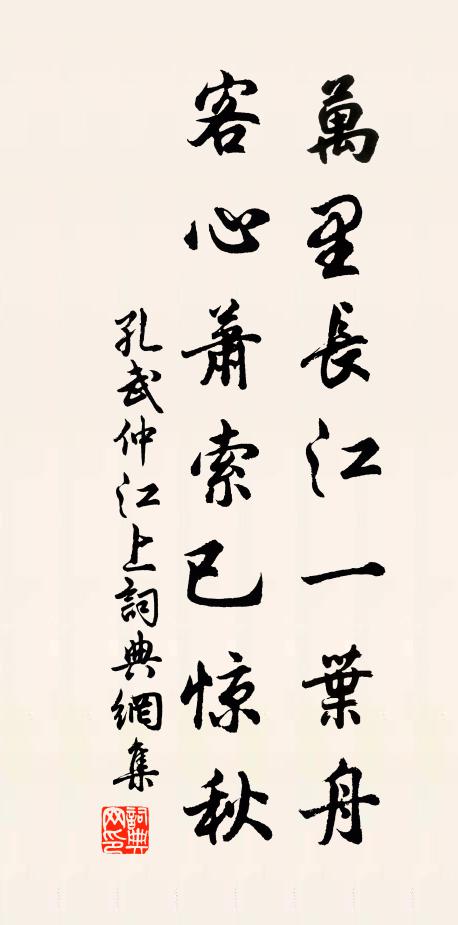 萬里長江一葉舟
客心蕭索已惊秋
孔武仲江上詞典網集
詞典
网印